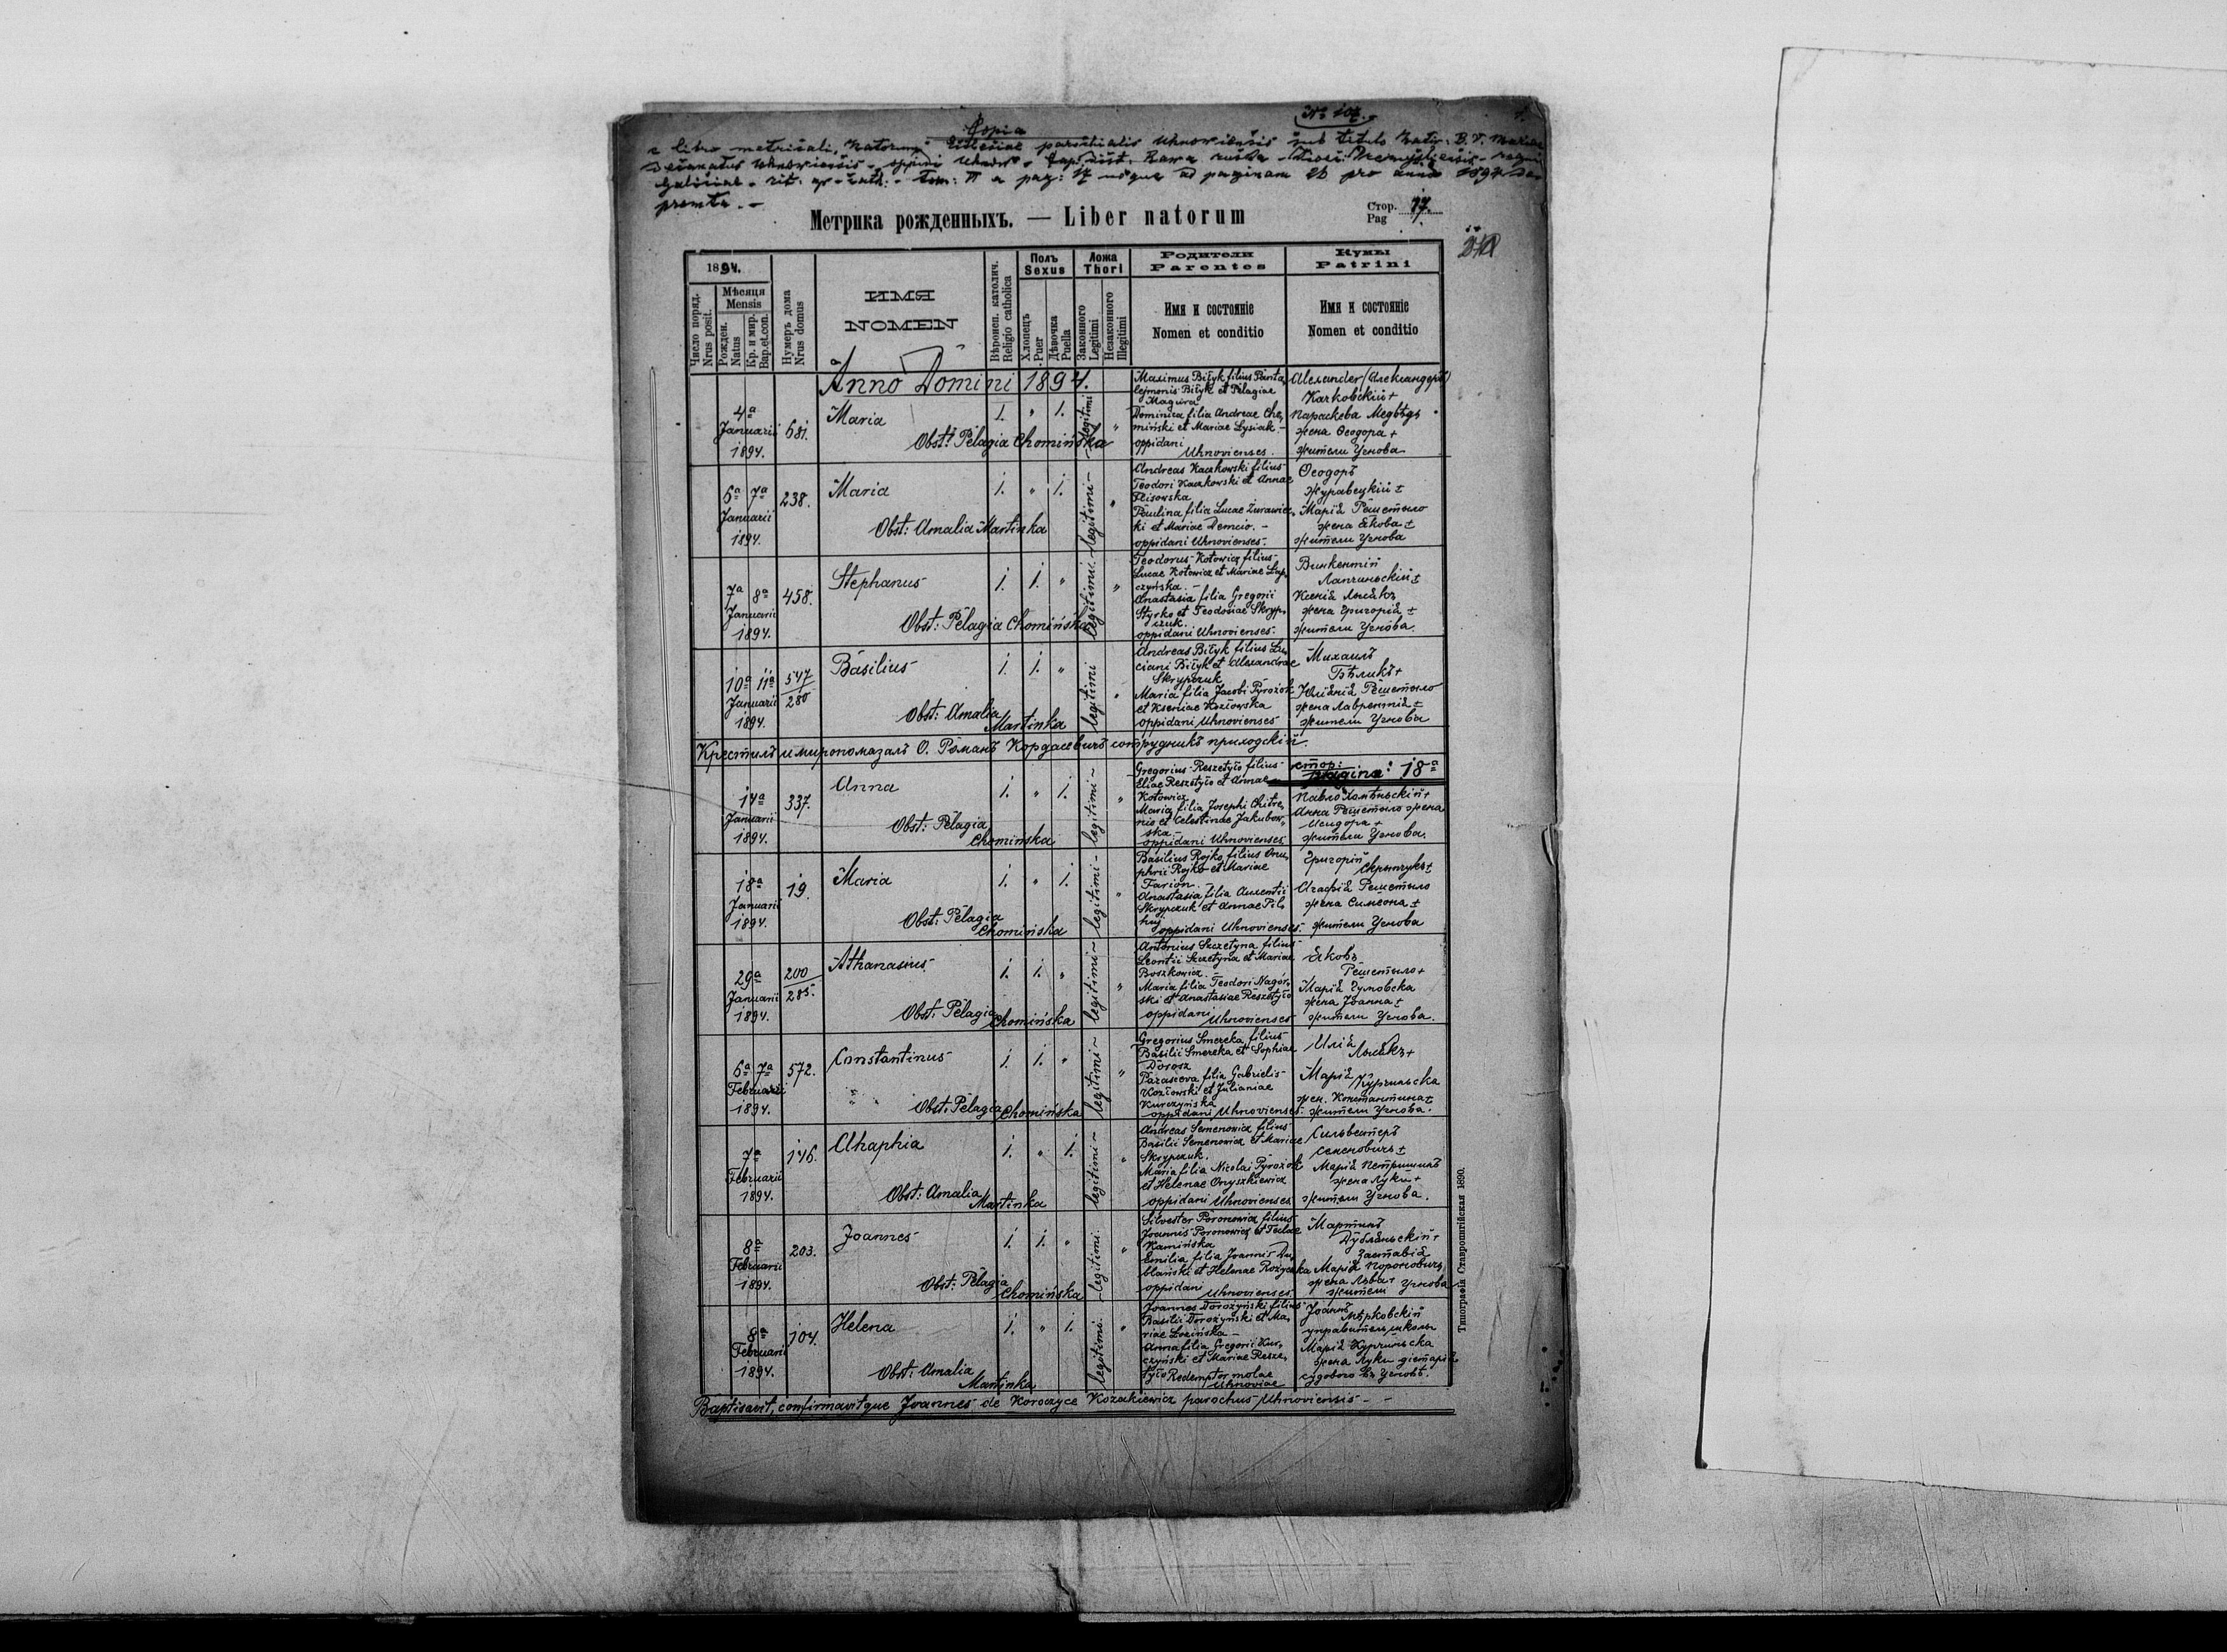 № 107.
Copia
e libro metricali, Natorum Ecclesiae parochialis Uhnoviensis sub titulo Nativ. B. V. Mariae
Decanatus Uhnoviensis, oppidi Uhnów - Rawa ruska -
Galiciae - rit. gr. cath. - Tom: II a pag: 17 usque ad paginam 26 pro anno 1894
prompta. -
Метрика рожденныхъ. — Liber natorum
Стор. Pag 17.
1894.
Число поряд. Nrus posit.
Мѣсяця Mensis
Рожден. Natus
Кр. и мир. Bap. et. con.
Нумеръ дома Nrus domus
ИМЯ
NOMEN
Вѣроисп. католич. Religio catholica
Полъ Sexus
Хлопецъ Puer
Дѣвочка Puella
Ложа Thori
Законного Legitimi
Незаконного Illegitimi
Родители
Parentes
Имя и состояніе
Nomen et conditio
Кумы
Patrini
Имя и состояніе
Nomen et conditio
Anno Domini 1894.
4ª Januarii 1894.
681.
Maria
1. " 1.
legitimi
Obst: Pelagia Chomińska
Maximus Biłyk filius Panta,
lejmonis Biłyk et Pelagiae
Magura
Dominica filia Andreae Cho,
miński et Mariae Lysiak -
oppidani
Uhnovienses.
Alexander (Александеръ)
Качковскій +
Параскева Медвѣдь
жена Ѳеодора +
жители Угнова
6ª 7ª Januarii 1894.
238.
Maria
1. " 1.
legitimi
Obst: Amalia Martinka
Andreas Kaczkowski filius
Teodori Kaczkowski et Annae
Flisowska
Paulina filia Lucae Żurawiec,
ki et Mariae Demcio. -
oppidani Uhnovienses.
Ѳеодоръ
Журавецкій ±
Марія Решетыло
жена Якова ±
жители Угнова
7ª 8ª Januarii 1894.
458.
Stephanus
1. 1. "
legitimi
Obst: Pelagia Chomińska
Teodorus Kotowicz filius
Lucae Kotowicz et Mariae Łap,
czyńska.
Anastasia filia Gregorii
Styrko et Teodosiae Skryp,
czuk.
oppidani Uhnovienses.
Винкентій
Лапчиньскій ±
Ксенія Лысакъ
жена Григорія ±
жители Угнова.
10ª 11ª Januarii 1894.
547/280
Basilius
1. 1. "
legitimi
Obst: Amalia
Martinka
Andreas Biłyk filius Lu,
ciani Biłyk et Alexandrae
Skrypczuk
Maria filia Jacobi Pyrożok
et Kseniae Kozłowska
oppidani Uhnovienses
Михаилъ
Бѣликъ +
Юліанія Решетыло
жена Лаврентія ±
жители Угнова
Крестилъ и миропомазалъ О. Романъ Кордасевичъ сотрудникъ приходскій.
стор:
pagina: 18ª
14ª Januarii 1894.
337.
Anna
1. " 1.
legitimi
Obst: Pelagia
Chomińska
Gregorius Reszetyło filius
Eliae Reszetyło et Annae
Kotowicz
Maria filia Josephi Chitre,
nio et Celestinae Jakubow,
ska.
oppidani Uhnovienses
Анна Решетыло жена
Исидора +
жители Угнова.
18ª Januarii 1894.
19.
Maria
1. " 1.
legitimi
Obst: Pelagia
Chomińska
Basilius Rojko filius Onu,
phrii Rojko et Mariae
Farion.
Anastasia filia Auxentii
Skrypczuk et Annae Pil,
huj
oppidani Uhnovienses.
Григорій
Скрыпчукъ ±
Агафія Решетыло
жена Симеона ±
жители Угнова
29ª Januarii 1894.
200/285.
Athanasius
1. 1. "
legitimi
Obst. Pelagia
Chomińska
Antonius Szczetyna filius
Leontii Szczetyna et Mariae
Boszkowicz.
Maria filia Teodori Nagór,
ski et Anastasiae Reszetyło
oppidani
Uhnovienses
Яковъ
Решетыло +
Марія Гумовска
жена Іоанна ±
жители Угнова.
6ª 7ª Februarii 1894.
572.
Constantinus
1. 1. "
legitimi
Obst: Pelagia Chomińska
Gregorius Smereka filius
Basilii Smereka et Sophiae
Dorosz
Parasceva filia Gabrielis
Kozłowski et Julianiae
Kurczyńska
oppidani Uhnovienses.
Илія
Лысакъ +
Марія Курчиньска
жен. Константина ±
жители Угнова.
7ª Februarii 1894.
146.
Ahaphia
1. " 1.
legitimi
Obst: Amalia
Martinka
Andreas Semenowicz filius
Basilii Semenowicz et Mariae
Skrypczuk.
Maria filia Nicolai Pyrożok
et Helenae Onyszkiewicz
oppidani Uhnovienses
Сильвестеръ
Семеновичъ ±
Марія Петришинъ
жена Луки +
жители Угнова.
8ª Februarii 1894.
203.
Joannes
1. 1. "
legitimi.
Obst: Pelagia
Chomińska
Silvester Poronowicz filius
Joannis Poronowicz et Teclae
Kamińska
Emilia filia Joannis Du,
blański et Helenae Rożycka
oppidani
Uhnovienses
Мартинъ
Дубляньскій +
Заставія
Марія Пороновичъ
жена Льва + Угнова
жители
8ª Februarii 1894.
104.
Helena
1. " 1.
legitimi.
Obst: Amalia
Martinka
Joannes Dorożyński filius
Basilii Dorożyński et Ma,
riae Łozińska -
Anna filia Gregorii Kur,
czyński et Mariae Resze,
tyło Redemptor molae
Uhnoviae
Іоаннъ
Мѣрковскій
управитель школы
Марія Курчиньска
жена Луки діетарія
судового въ Угновѣ.
Baptisavit, confirmavitque Joannes de Koroczyce Kozakiewicz parochus Uhnoviensis - -
Типографія Ставропигійская 1890.